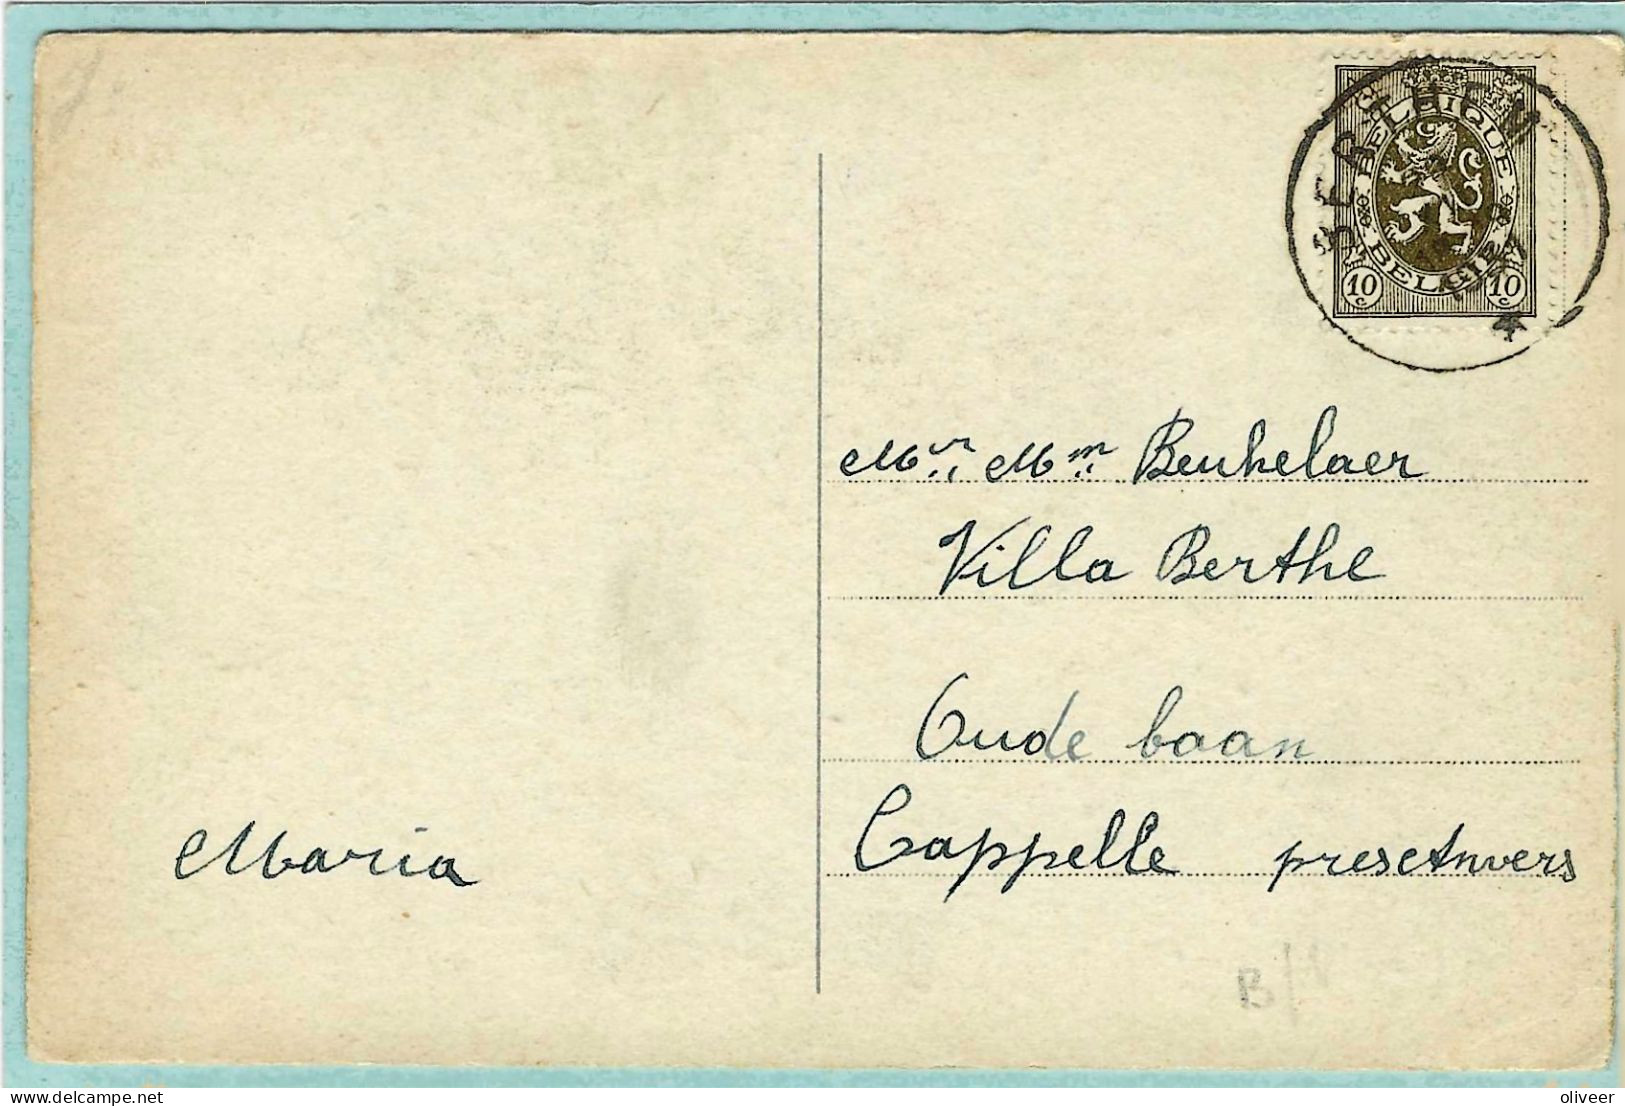 BERCHEM
BELGIQUE
BELGIË
10 c 10 c
Mr. Mm. Beukelaer
Villa Berthe
Oude baan
Cappelle pres Anvers
Maria
B/
delcampe.net
oliveer